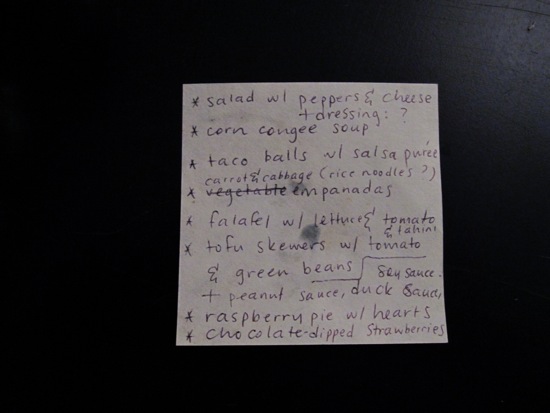 * salad w/ peppers & cheese
+ dressing: ?
* corn congee soup
* taco balls w/ salsa purée
carrot & cabbage (rice noodles?)
* vegetable empanadas
* falafel w/ lettuce & tomato
& tahini
* tofu skewers w/ tomato
& green beans / soy sauce.
+ peanut sauce, duck sauce,
* raspberry pie w/ hearts
* chocolate-dipped strawberries